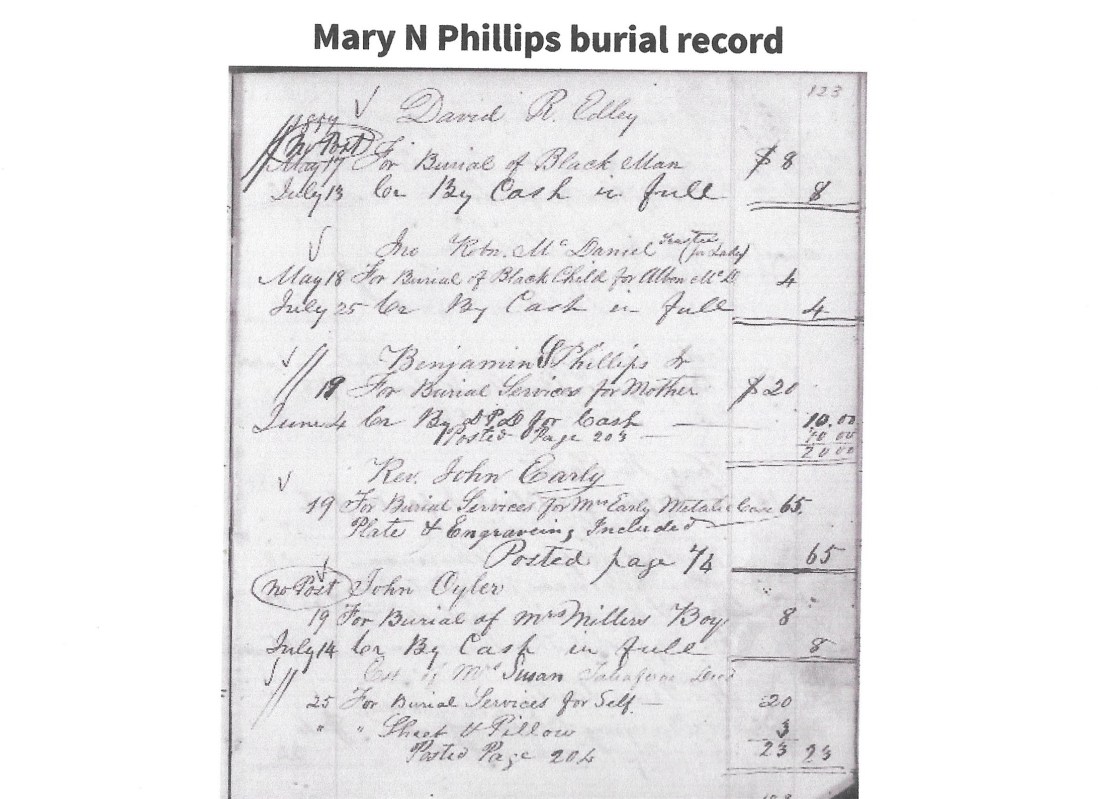 Mary N Phillips burial record
123
David R. Edley
1857
No Post
May 17 For Burial of Black Man $ 8
July 13 Cr By Cash in full 8
Jno Robn. McDaniel Trustee (for Lady)
May 18 For Burial of Black Child for Albon McD 4
July 25 Cr By Cash in full 4
Benjamin S Phillips Jr
19 For Burial Services for Mother $ 20
June 4 Cr By for Cash 10.00
Posted Page 203 10 00
20 00
Rev. John Early
19 For Burial Services for Mrs Early Metalic Case 65.
Plate & Engraveing Included
Posted page 74 65
no Post John Oyler
19 For Burial of Mrs Millers Boy 8
July 14 Cr By Cash in full 8
Est. of Mrs Susan Decd
25 For Burial Services for Self 20
" " Sheet & Pillow 3
23 23
Posted Page 204